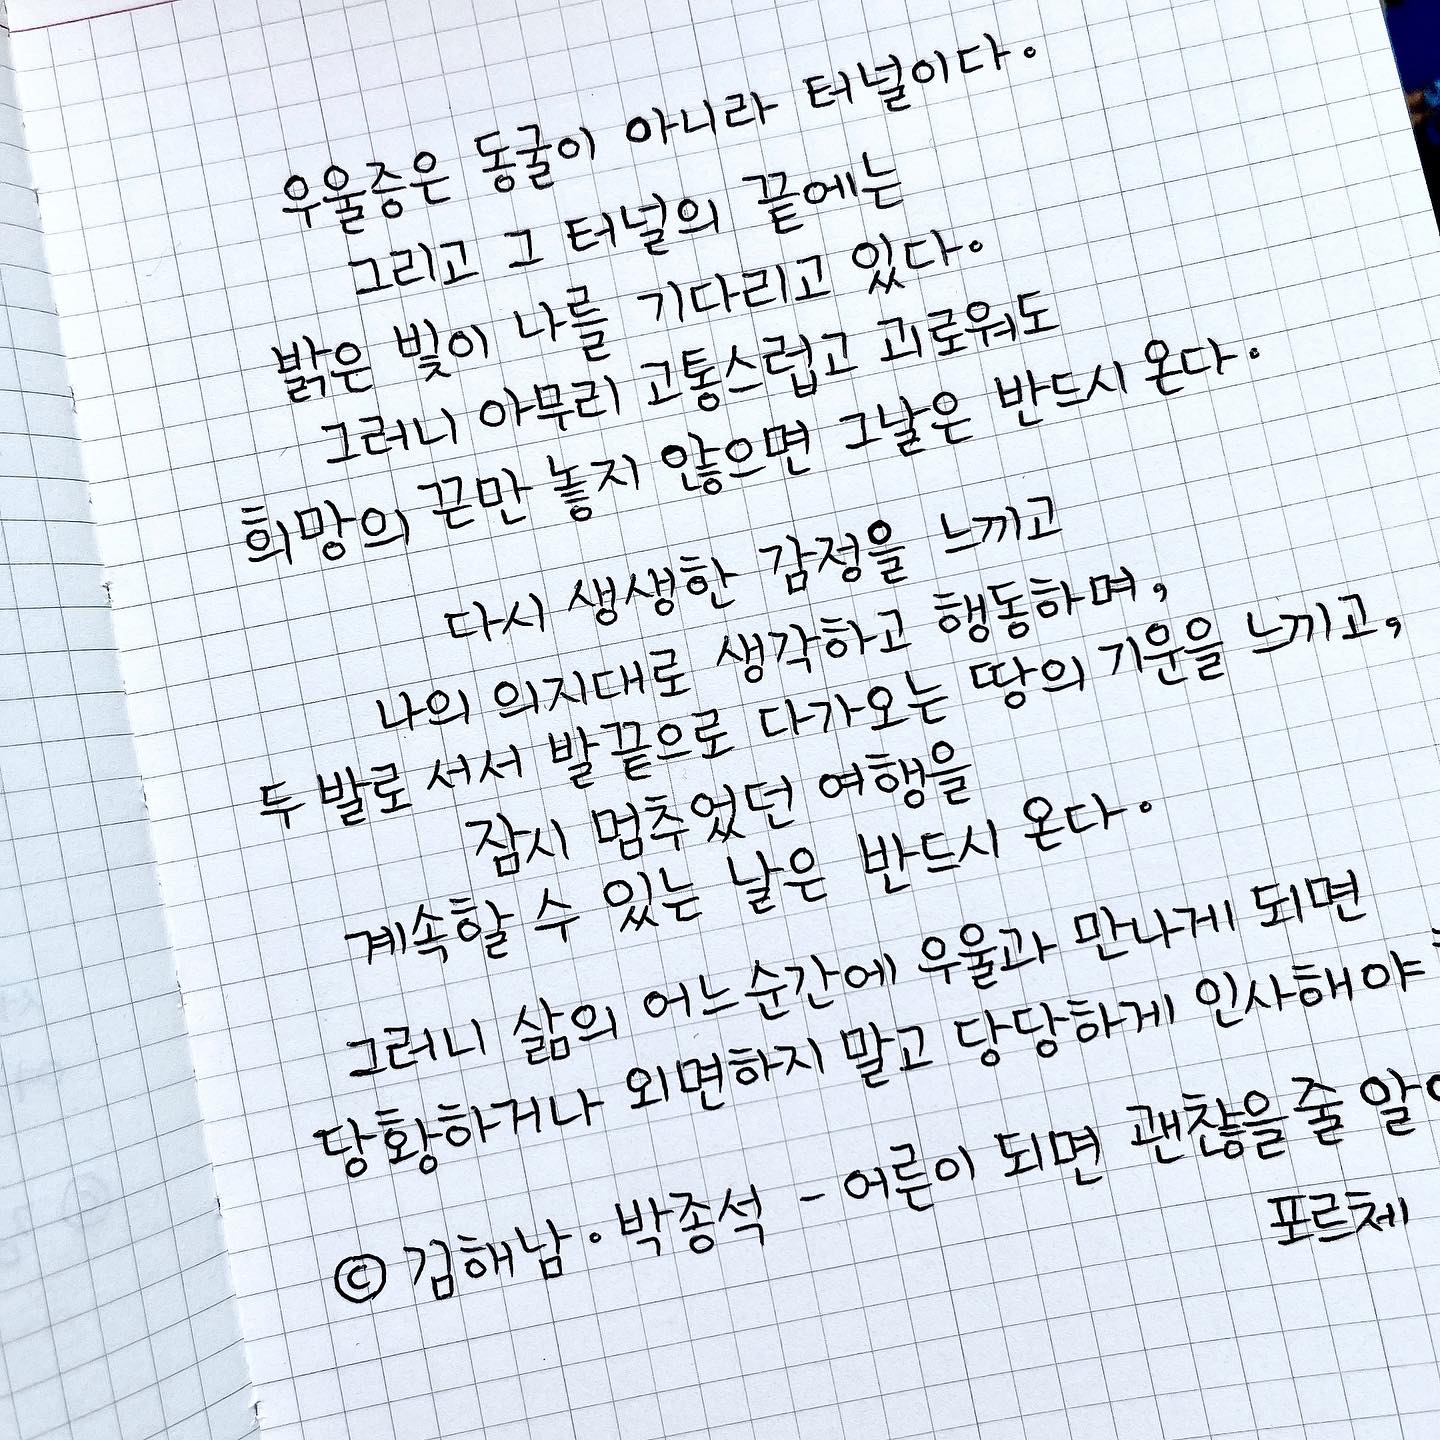 우울증은 동굴이 아니라 터널이다.
그리고 그 터널의 끝에는
밝은 빛이 나를 기다리고 있다.
그러니 아무리 고통스럽고 괴로워도
희망의 끈만 놓지 않으면 그날은 반드시 온다.
다시 생생한 감정을 느끼고
나의 의지대로 생각하고 행동하며,
두 발로 서서 발끝으로 다가오는 땅의 기운을 느끼고,
잠시 멈추었던 여행을
계속할 수 있는 날은 반드시 온다.
그러니 삶의 어느순간에 우울과 만나게 되면
당황하거나 외면하지 말고 당당하게 인사해야
© 김해남·박종석 - 어른이 되면 괜찮을 줄
포르체